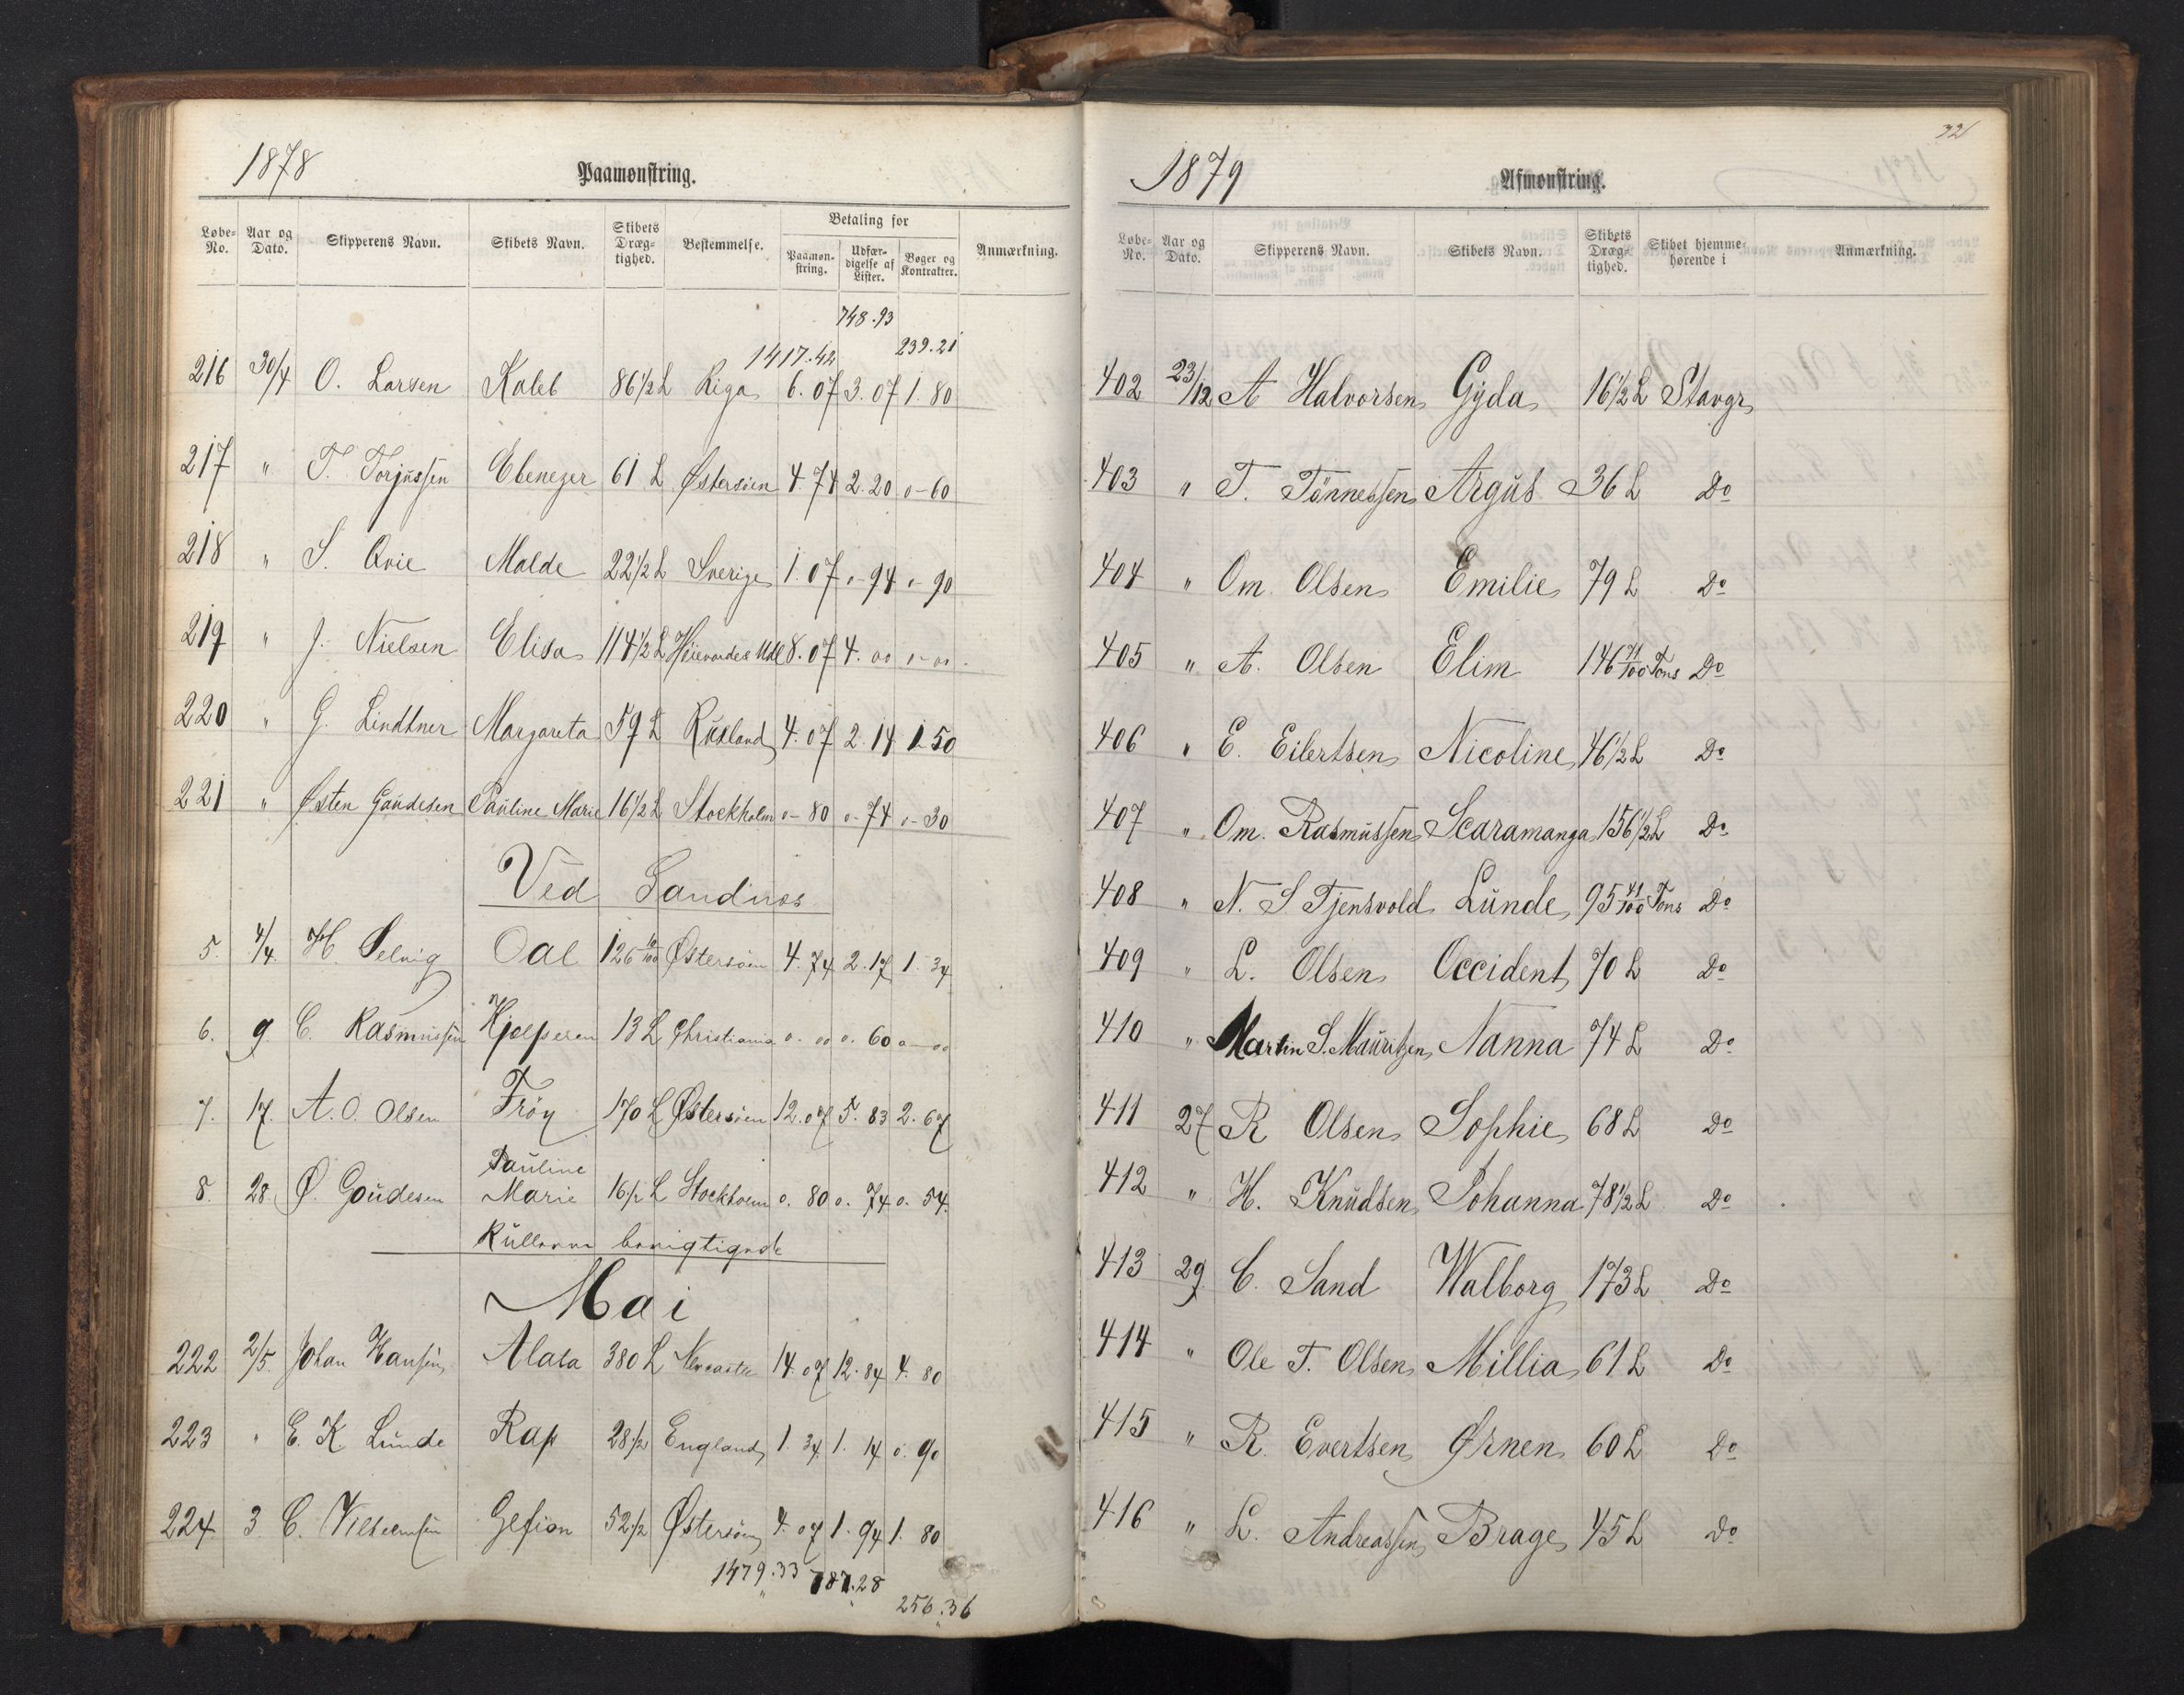 1878
Paamønstring.
Løbe-No.
Aar og Dato.
Skipperens Navn.
Skibets Navn.
Skibets Dræg-tighed.
Bestemmelse.
Betaling for
Paamøn-string.
Udfær-digelse af Lister.
Bøger og Kontrakter.
Anmærkning.
748.93
1417.42 239.21
216 30/4 O. Larsen Kaleb 86 1/2 L Riga 6.07 3.07 1.80
217 " T. Torjussen Ebenezer 61 L Østersöen 4.74 2.20 0-60
218 " S. Qvie Malde 22 1/2 L Sverige 1.07 0-94 0-90
219 " J. Nielsen Elisa 114 1/2 L 8.07 4.00 0-00.
220 " G. Lindtner Margareta 59 L Rusland 4.07 2.14 1.50
221 " Østen Gaudesen Pauline Marie 16 1/2 L Stockholm 0-80 0-74 0-30
Ved Sandnæs
5. 4/4. H. Selvig Oal 126 10/100 Østersöen 4.74 2.17 1.34
6. 9. C. Rasmussen Hjælperen 13 L Christiania 0.00 0.60 0-00
7. 17. A. O. Olsen Fröy 170 L Østersöen 12.07 5.83 2.67
8. 28. Ø. Goudesen Pauline Marie 16 1/2 L Stockholm 0.80 0.74 0.54.
Mai
222 2/5. Johan Hansen Alasa 380 L Newcastle 14.07 12.84 4.80
223 " E. K. Lunde Rap 28 1/2 England 1.34 1.14 0.90
224 3 C. Vilhelmsen Gefion 52 1/2 Østersöen 4.07 1.94 1.80
1479.33 787.28
256.36
32
1879
Afmønstring.
Løbe-No.
Aar og Dato.
Skipperens Navn.
Skibets Navn.
Skibets Dræg-tighed.
Skibet hjemme-hørende i
Anmærkning.
402 23/12 A Halvorsen Gyda 16 1/2 L Stavgr
403 " T. Tönnessen Argus 36 L Do
404 " Om. Olsen Emilie 79 L Do
405 " A. Olsen Elim 146 71/100 Tons Do
406 " E. Eilertsen Nicoline 46 1/2 L Do
407 " Om. Rasmussen Scaramanga 156 1/2 L Do
408 " N. S Tjensvold Lunde 95 41/100 Tons Do
409 " L. Olsen Occident 70 L Do
410 " Martin S. Mauritzen Nanna 74 L Do
411 27 R Olsen Sophie 68 L Do
412 " H. Knudsen Johanna 78 1/2 L Do
413 29 C. Sand Walborg 173 L Do
414 " Ole T. Olsen Millia 61 L Do
415 " R. Evertsen Ørnen 60 L Do
416 " L. Andreassen Brage 45 L Do